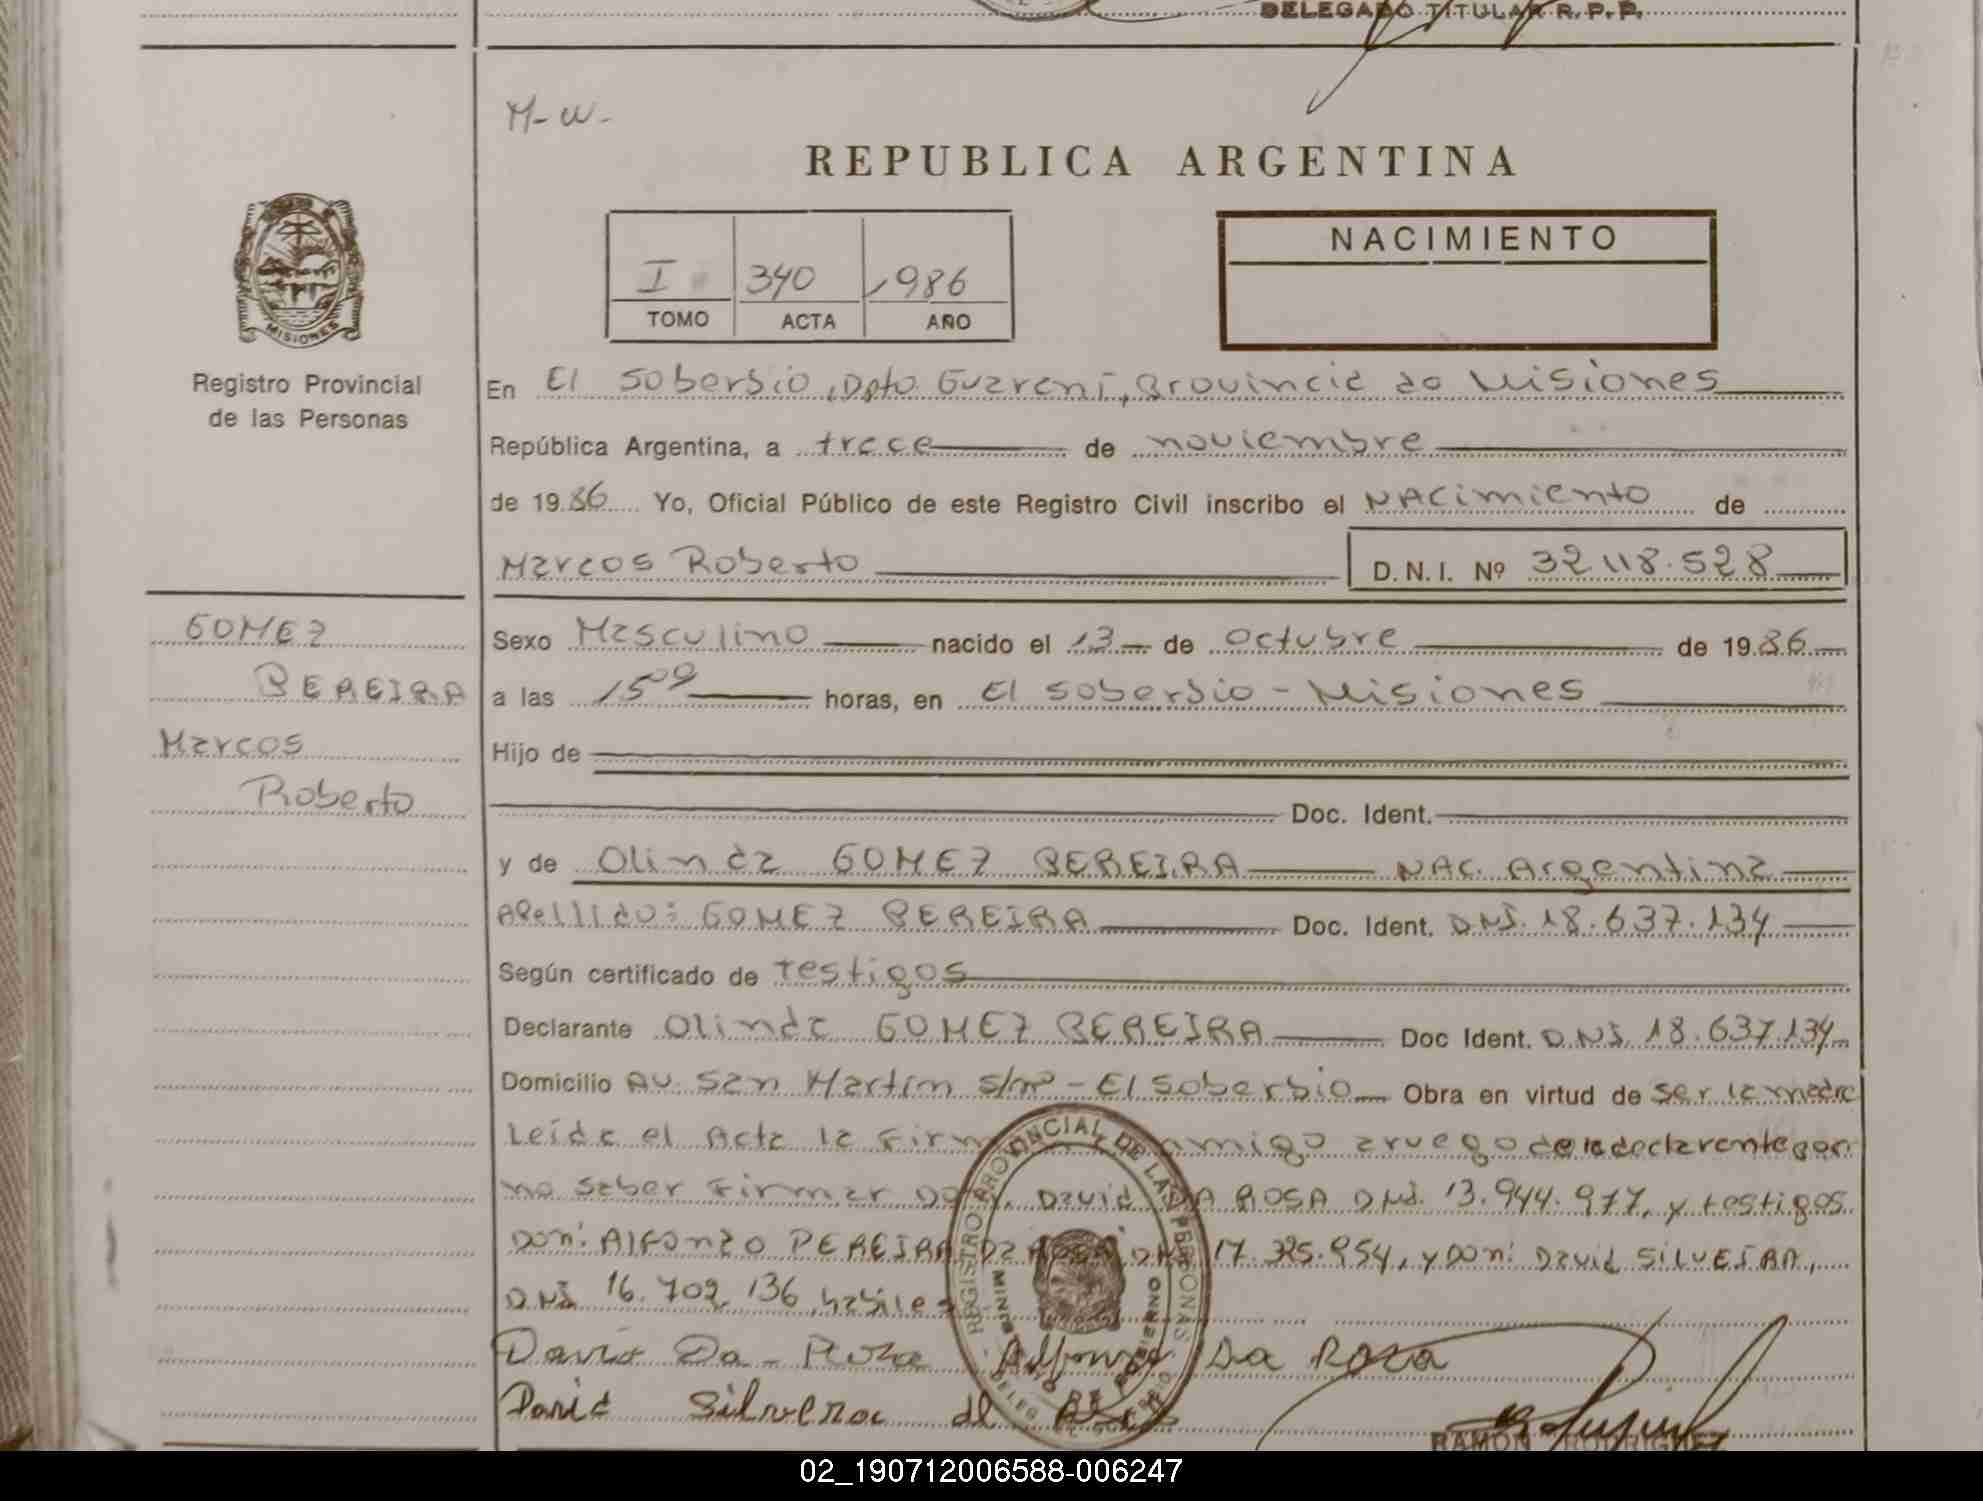 DELEGADO TITULAR R. P. P.
M-W-
REPUBLICA ARGENTINA
MISIONES
Registro Provincial
de las Personas
I 340 1986
TOMO ACTA AÑO
NACIMIENTO
En El Soberbio, Dpto. Guarani, Provincia de Misiones
República Argentina, a trece de noviembre
de 1986 Yo, Oficial Público de este Registro Civil inscribo el NACimiento de
Marcos Roberto D.N.I. Nº 32.118.528
GOMEZ
PEREIRA
Marcos
Roberto
Sexo Masculino nacido el 13 de octubre de 1986
a las 15 09 horas, en El Soberbio - Misiones
Hijo de
Doc. Ident.
y de Olinda GOMEZ PEREIRA NAC. Argentina
Apellido: GOMEZ PEREIRA Doc. Ident. DNI. 18.637.134
Según certificado de testigos
Declarante Olinda GOMEZ PEREIRA Doc Ident. DNI. 18.637.134
Domicilio AV. San Martin s/nº - El Soberbio Obra en virtud de ser la madre
Leida el Acta la Firm amigo a ruego de la declarante por
no saber Firmar Don. David DA ROSA DNI. 13.944.977, y testigos
Don: Alfonzo PEREIRA Da ROSA, DNI 17.325.954, y Don: David SILVEIRA,
DNI 16.702.136, habiles
REGISTRO PROVINCIAL DE LAS PERSONAS
David Da-Roza Alfonzo Da Roza
David Silveira de
RAMON RODRIGUEZ
02_190712006588-006247